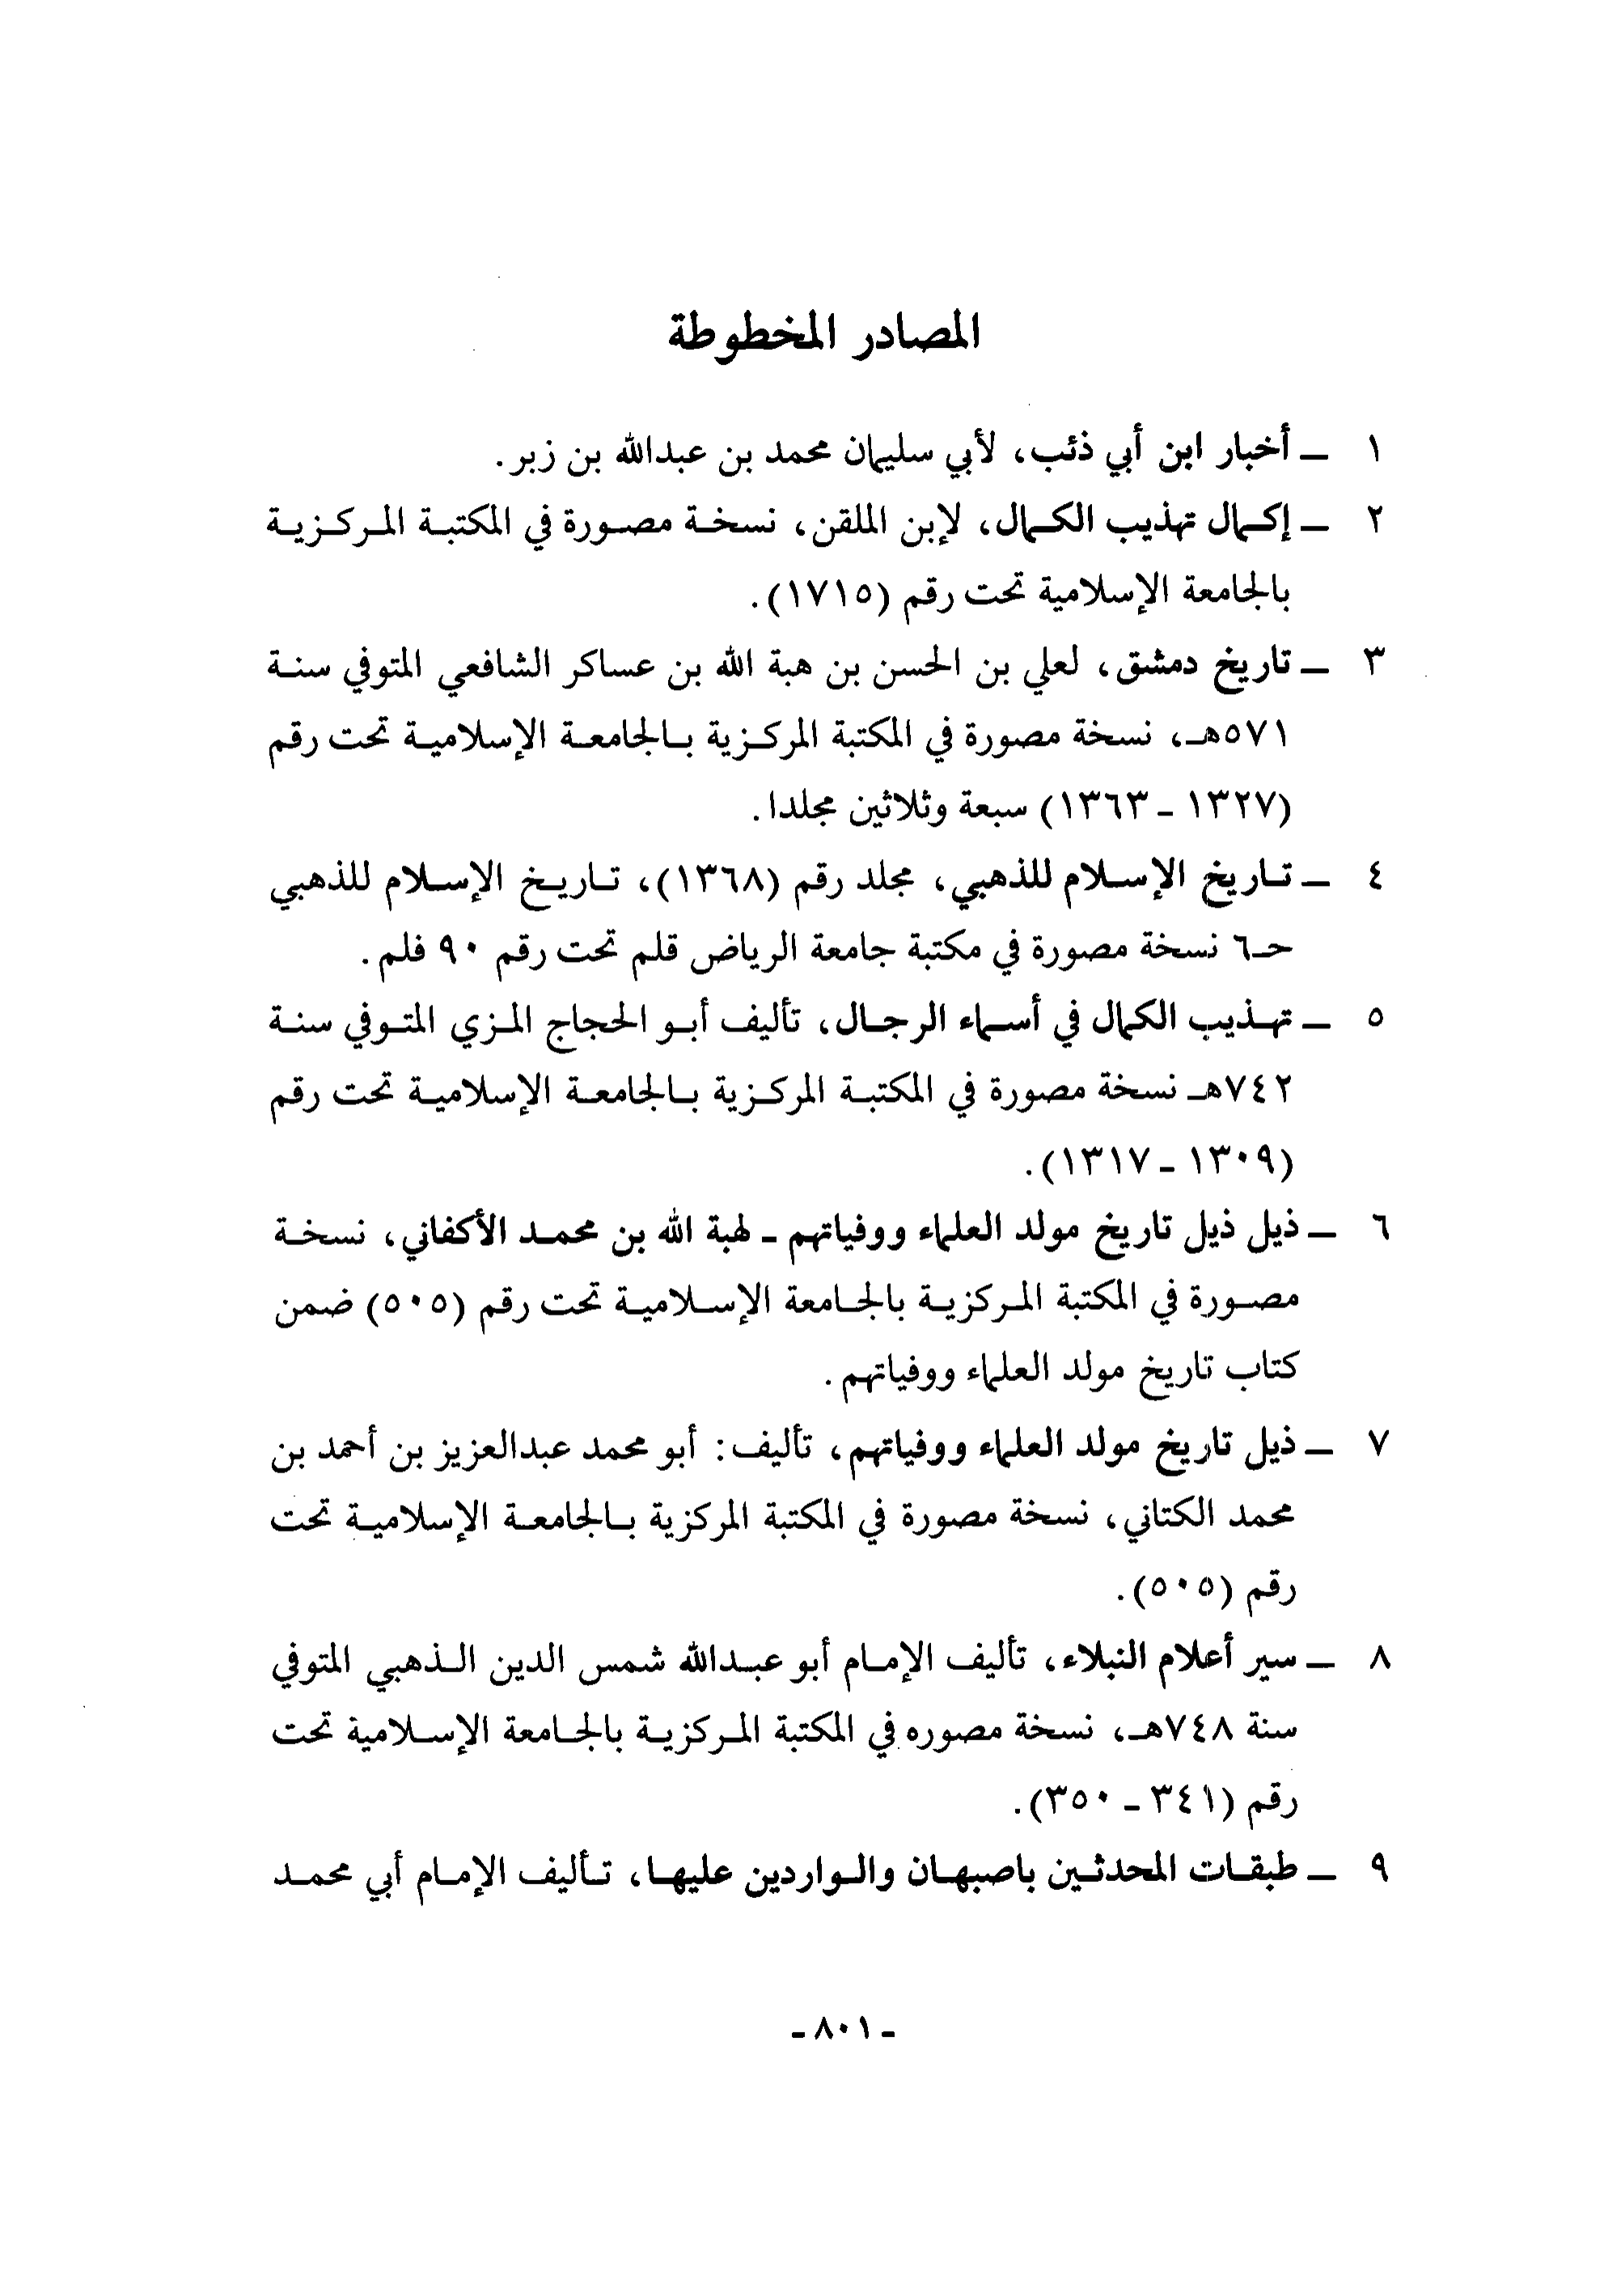 المصادر المخطوطة
١ ـ أخبار ابن أبي ذئب، لأبي سليمان محمد بن عبدالله بن زبر.
٢ ـ إكمال تهذيب الكمال، لإبن الملقن، نسخة مصورة في المكتبة المركزية
بالجامعة الإسلامية تحت رقم (١٧١٥).
٣ ـ تاريخ دمشق، لعلي بن الحسن بن هبة الله بن عساكر الشافعي المتوفي سنة
٥٧١هـ، نسخة مصورة في المكتبة المركزية بالجامعة الإسلامية تحت رقم
(١٣٢٧ ـ ١٣٦٣) سبعة وثلاثين مجلدا.
٤ ـ تاريخ الإسلام للذهبي، مجلد رقم (١٣٦٨)، تاريخ الإسلام للذهبي
حـ٦ نسخة مصورة في مكتبة جامعة الرياض قلم تحت رقم ٩٠ فلم.
٥ ـ تهذيب الكمال في أسماء الرجال، تأليف أبو الحجاج المزي المتوفي سنة
٧٤٢هـ نسخة مصورة في المكتبة المركزية بالجامعة الإسلامية تحت رقم
(١٣٠٩ ـ ١٣١٧).
٦ ـ ذيل ذيل تاريخ مولد العلماء ووفياتهم ـ لهبة الله بن محمد الأكفاني، نسخة
مصورة في المكتبة المركزية بالجامعة الإسلامية تحت رقم (٥٠٥) ضمن
كتاب تاريخ مولد العلماء ووفياتهم.
٧ ـ ذيل تاريخ مولد العلماء ووفياتهم، تأليف: أبو محمد عبدالعزيز بن أحمد بن
محمد الكتاني، نسخة مصورة في المكتبة المركزية بالجامعة الإسلامية تحت
رقم (٥٠٥).
٨ ـ سير أعلام النبلاء، تأليف الإمام أبو عبدالله شمس الدين الذهبي المتوفي
سنة ٧٤٨هـ، نسخة مصوره في المكتبة المركزية بالجامعة الإسلامية تحت
رقم (٣٤١ ـ ٣٥٠).
٩ ـ طبقات المحدثين باصبهان والواردين عليها، تأليف الإمام أبي محمد
ـ ٨٠١ ـ